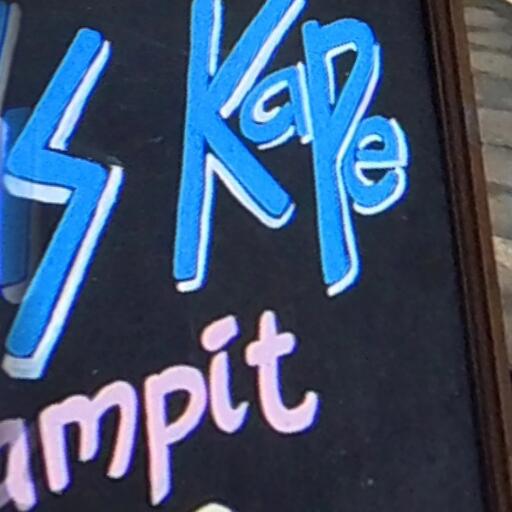 s Kape
ampit